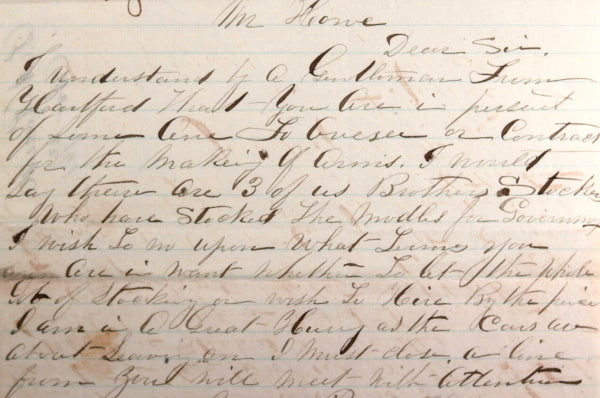 Mr Howe
Dear Sir.
I understand by a Gentleman From
Hartford that You are in pursuit
of some one To Oversee or Contract
for the Making Of Arms. I would
say there are 3 of us Brothers Stockers
Who have Stocked The Modles for Government
I wish To no upon What Turms you
are in want whether To let the whole
Job of Stocking or wish To Hire By the piece
I am in A Great Hurry as the Cars are
about Leaving on I must close. a line
from You will meet with Attention